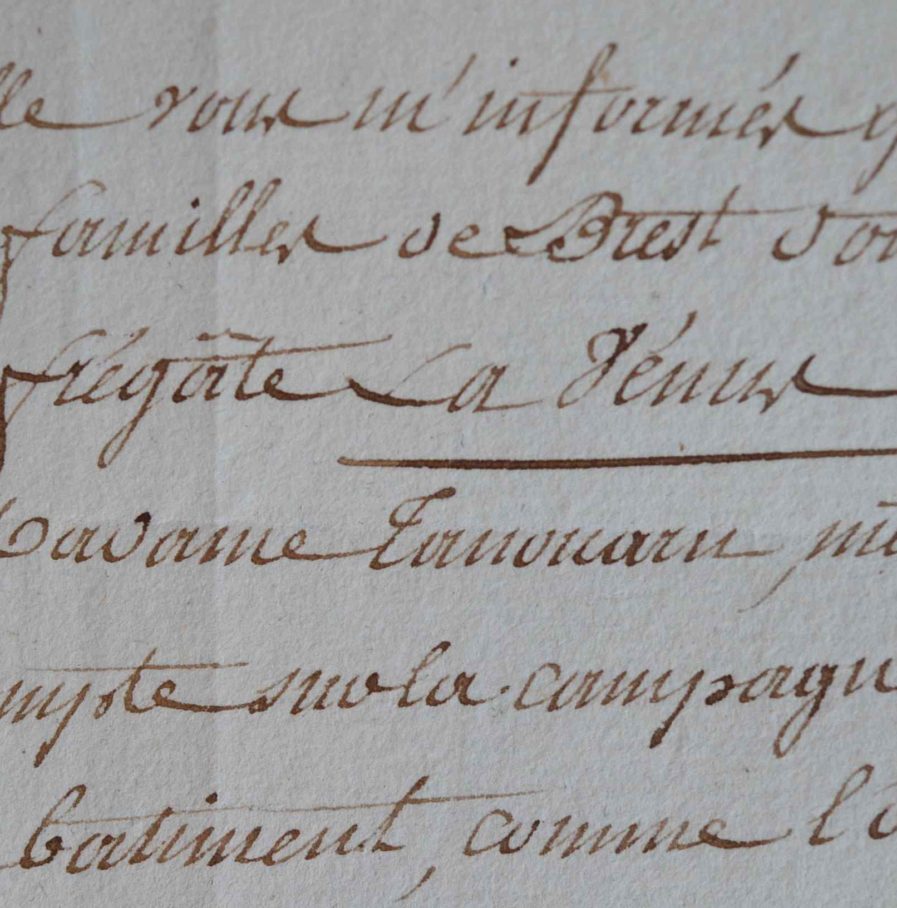 lle vous m'informés q
familles de Brest sont
frégâte La Vénus
Madame Tanouarn, m
mpte sur la campagn
batiment, comme l'